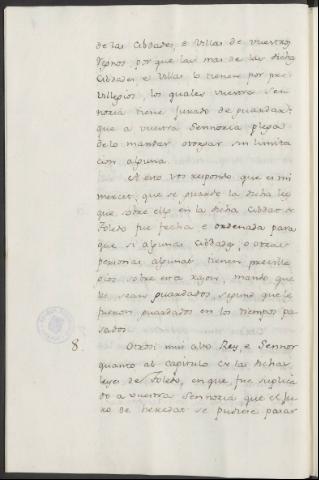 de las Cibdades, e Villas de vuestros
Regnos, por que las mas de las dichas
Cibdades, e Villas lo tienen por pre
villegios, los quales vuestra Sen
noria tiene jurado de guardar:
que a vuestra Sennoria plega
de lo mandar otorgar sin limita
cion alguna.
A esto vos respondo que es mi
merced, que se guarde la dicha ley
que sobre ello en la dicha Cibdat de
Toledo fue fecha e ordenada para
que si algunas Cibdades, o otras
personas algunas tienen preville
gios sobre esta razon, mando que
les sean guardados, segund que les
fueron guardados en los tiempos pa
sados.
8. Otrosi mui alto Rey, e Sennor
quanto al capitulo en las dichas
leyes de Toledo, en que fue suplica
do a vuestra Sennoria que el fue
ro de heredat se pudiese parar